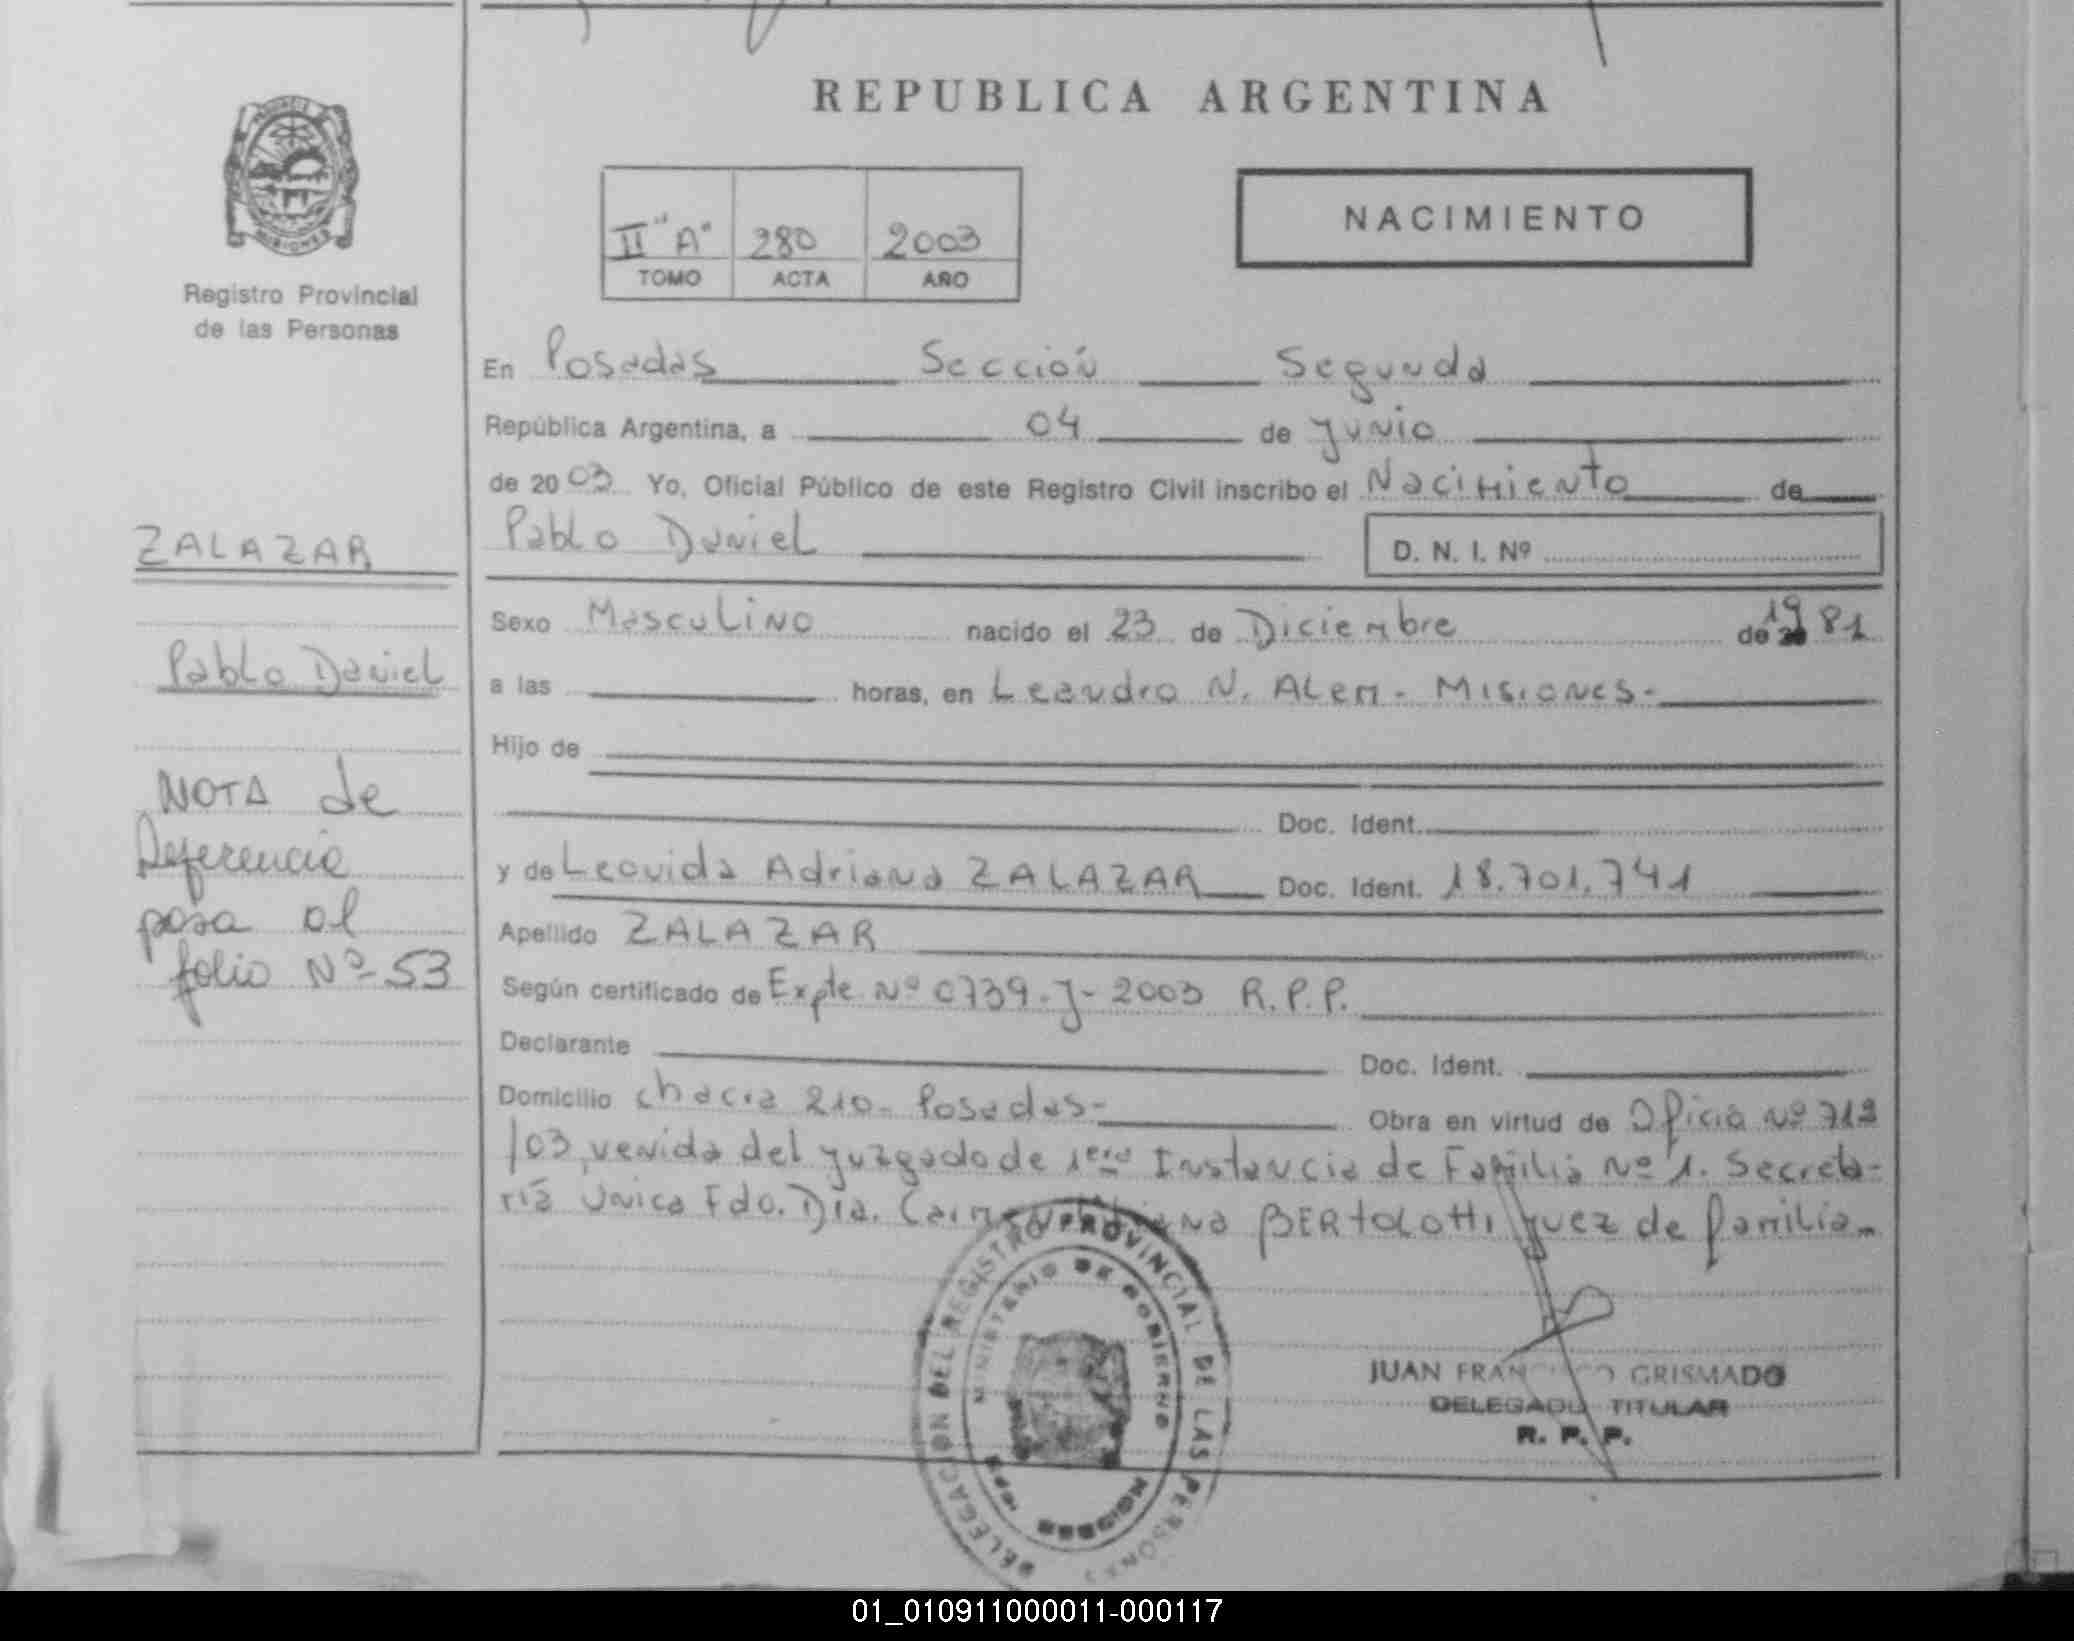 REPUBLICA ARGENTINA
MISIONES
Registro Provincial
de las Personas
II "A" 280 2003
TOMO ACTA AÑO
NACIMIENTO
En Posadas Sección Segunda
República Argentina, a 04 de Junio
de 2003 Yo, Oficial Público de este Registro Civil inscribo el Nacimiento de
Pablo Daniel D. N. I. Nº
ZALAZAR
Pablo Daniel
NOTA de
Referencia
pasa al
folio Nº 53
Sexo Masculino nacido el 23 de Diciembre de 1981
a las horas, en Leandro N. Alem - Misiones -
Hijo de
Doc. Ident.
y de Leovida Adriana ZALAZAR Doc. Ident. 18.701.741
Apellido ZALAZAR
Según certificado de Expte Nº 0739-J-2003 R.P.P.
Declarante Doc. Ident.
Domicilio chacra 210 - Posadas - Obra en virtud de Oficio Nº
/03, venida del Juzgado de 1era Instancia de Familia Nº 1. Secreta-
ria Unica Fdo. Dra. BERtolotti Juez de familia -
DELEGACION DEL REGISTRO PROVINCIAL DE LAS PERSONAS
MINISTERIO DE GOBIERNO
MISIONES
JUAN FRANCISCO GRISMADO
DELEGADO TITULAR
R. P. P.
01_010911000011-000117